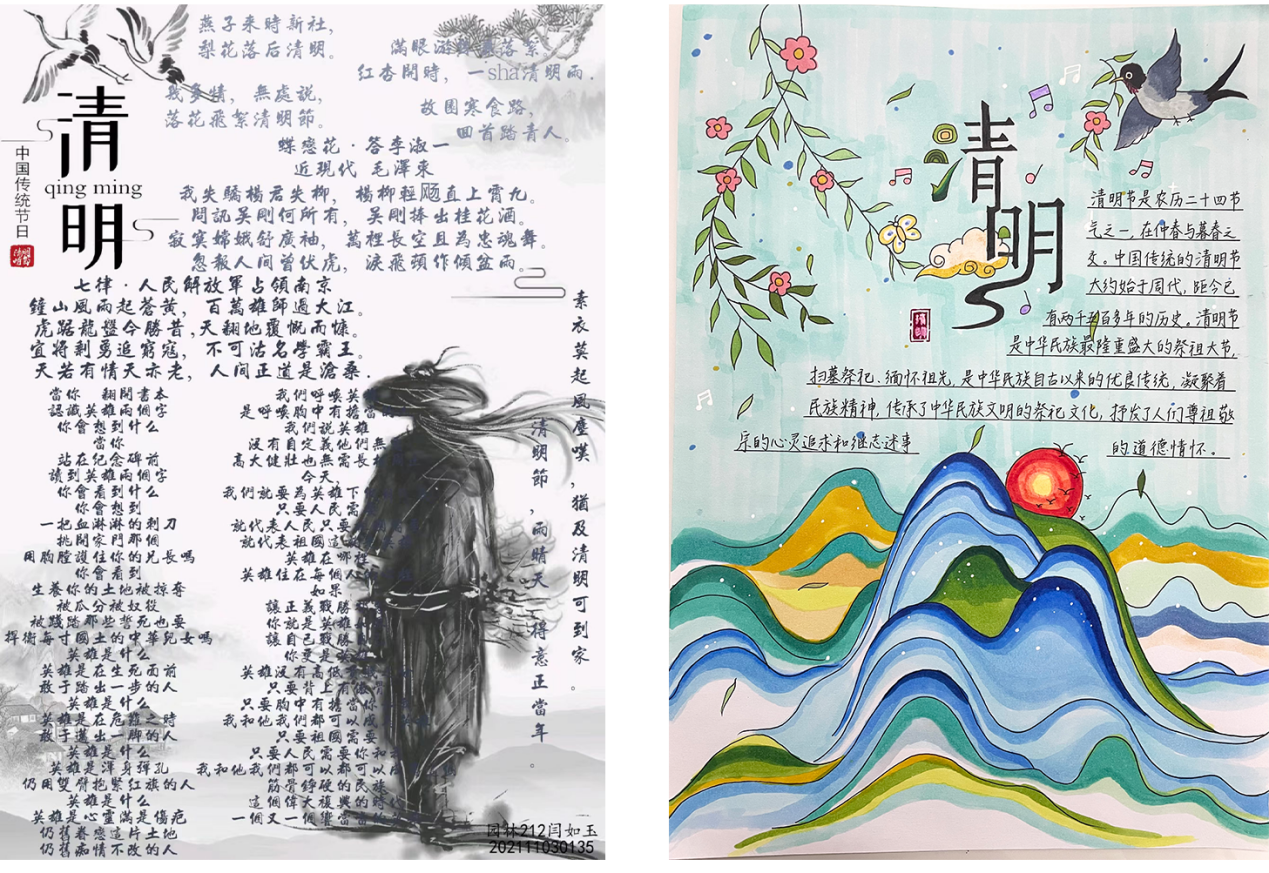 燕子来時新社，
梨花落后清明。
紅杏開時，一sha清明雨．
幾多情，無處説，
落花飛絮清明節。
故園寒食路，
回首踏青人。
清明
qing ming
中国传统节日
蝶戀花·答李淑一
近現代 毛澤東
我失驕楊君失柳，楊柳輕飏直上霄九。
問訊吴剛何所有，吴剛捧出桂花酒。
寂寞嫦娥舒廣袖，萬裡長空且為忠魂舞。
忽報人间曾伏虎，淚飛頓作傾盆雨。
七律·人民解放軍占領南京
鐘山風雨起蒼黄，百萬雄師過大江。
虎踞龍盤今勝昔，天翻地覆慨而慷。
宜将剩勇追窮寇，不可沽名學霸王。
天若有情天亦老，人间正道是滄桑．
當你 翻開書本
認識英雄兩個字
你會想到什么
當你
站在纪念碑前
讀到英雄兩個字
你會看到什么
你會想到
一把血淋淋的刺刀
挑開家門那個
用胸膛護住你的兄長嗎
你會看到
生養你的土地被掠夺
被瓜分被奴役
被踐踏那些誓死也要
捍衛每寸國土的中華兒女嗎
英雄是什么
英雄是在生死面前
敢于踏出一步的人
英雄是什么
英雄是在危難之時
敢于邁出一脚的人
英雄是什么
英雄是渾身彈孔
仍用雙臂抱緊红旗的人
英雄是什么
英雄是心靈滿是傷疤
仍舊眷戀這片土地
仍舊痴情不改的人
我們呼唤英
是呼唤胸中有擔當
我們説英雄
没有自定義他們無
高大健壯也無需長
今天，
我們就要為英雄下
只要人民需
就代表人民只要
就代表祖國這
英雄在哪裡
英雄住在每個人
如果
讓正義戰勝
你就是英雄
讓自己戰勝
你更是英
英雄没有高低
只要背上有
只要胸中有擔當你
我和他我們都可以成
只要祖國需要
只要人民需要你和
我和他我們都可以都可以
筋骨錚硬的民族
這個偉大複興的時代
一個又一個響當當的
素衣莫起風塵嘆，猶及清明可到家。
清明節，雨晴天，得意正當年。
园林212闫如玉
202111030135
清明
清明节是农历二十四节
气之一，在仲春与暮春之
交。中国传统的清明节
大约始于周代，距今已
有两千五百多年的历史。清明节
是中华民族最隆重盛大的祭祖大节，
扫墓祭祀、缅怀祖先，是中华民族自古以来的优良传统，凝聚着
民族精神，传承了中华民族文明的祭祀文化，抒发了人们尊祖敬
宗的心灵追求和继志述事 的道德情怀。